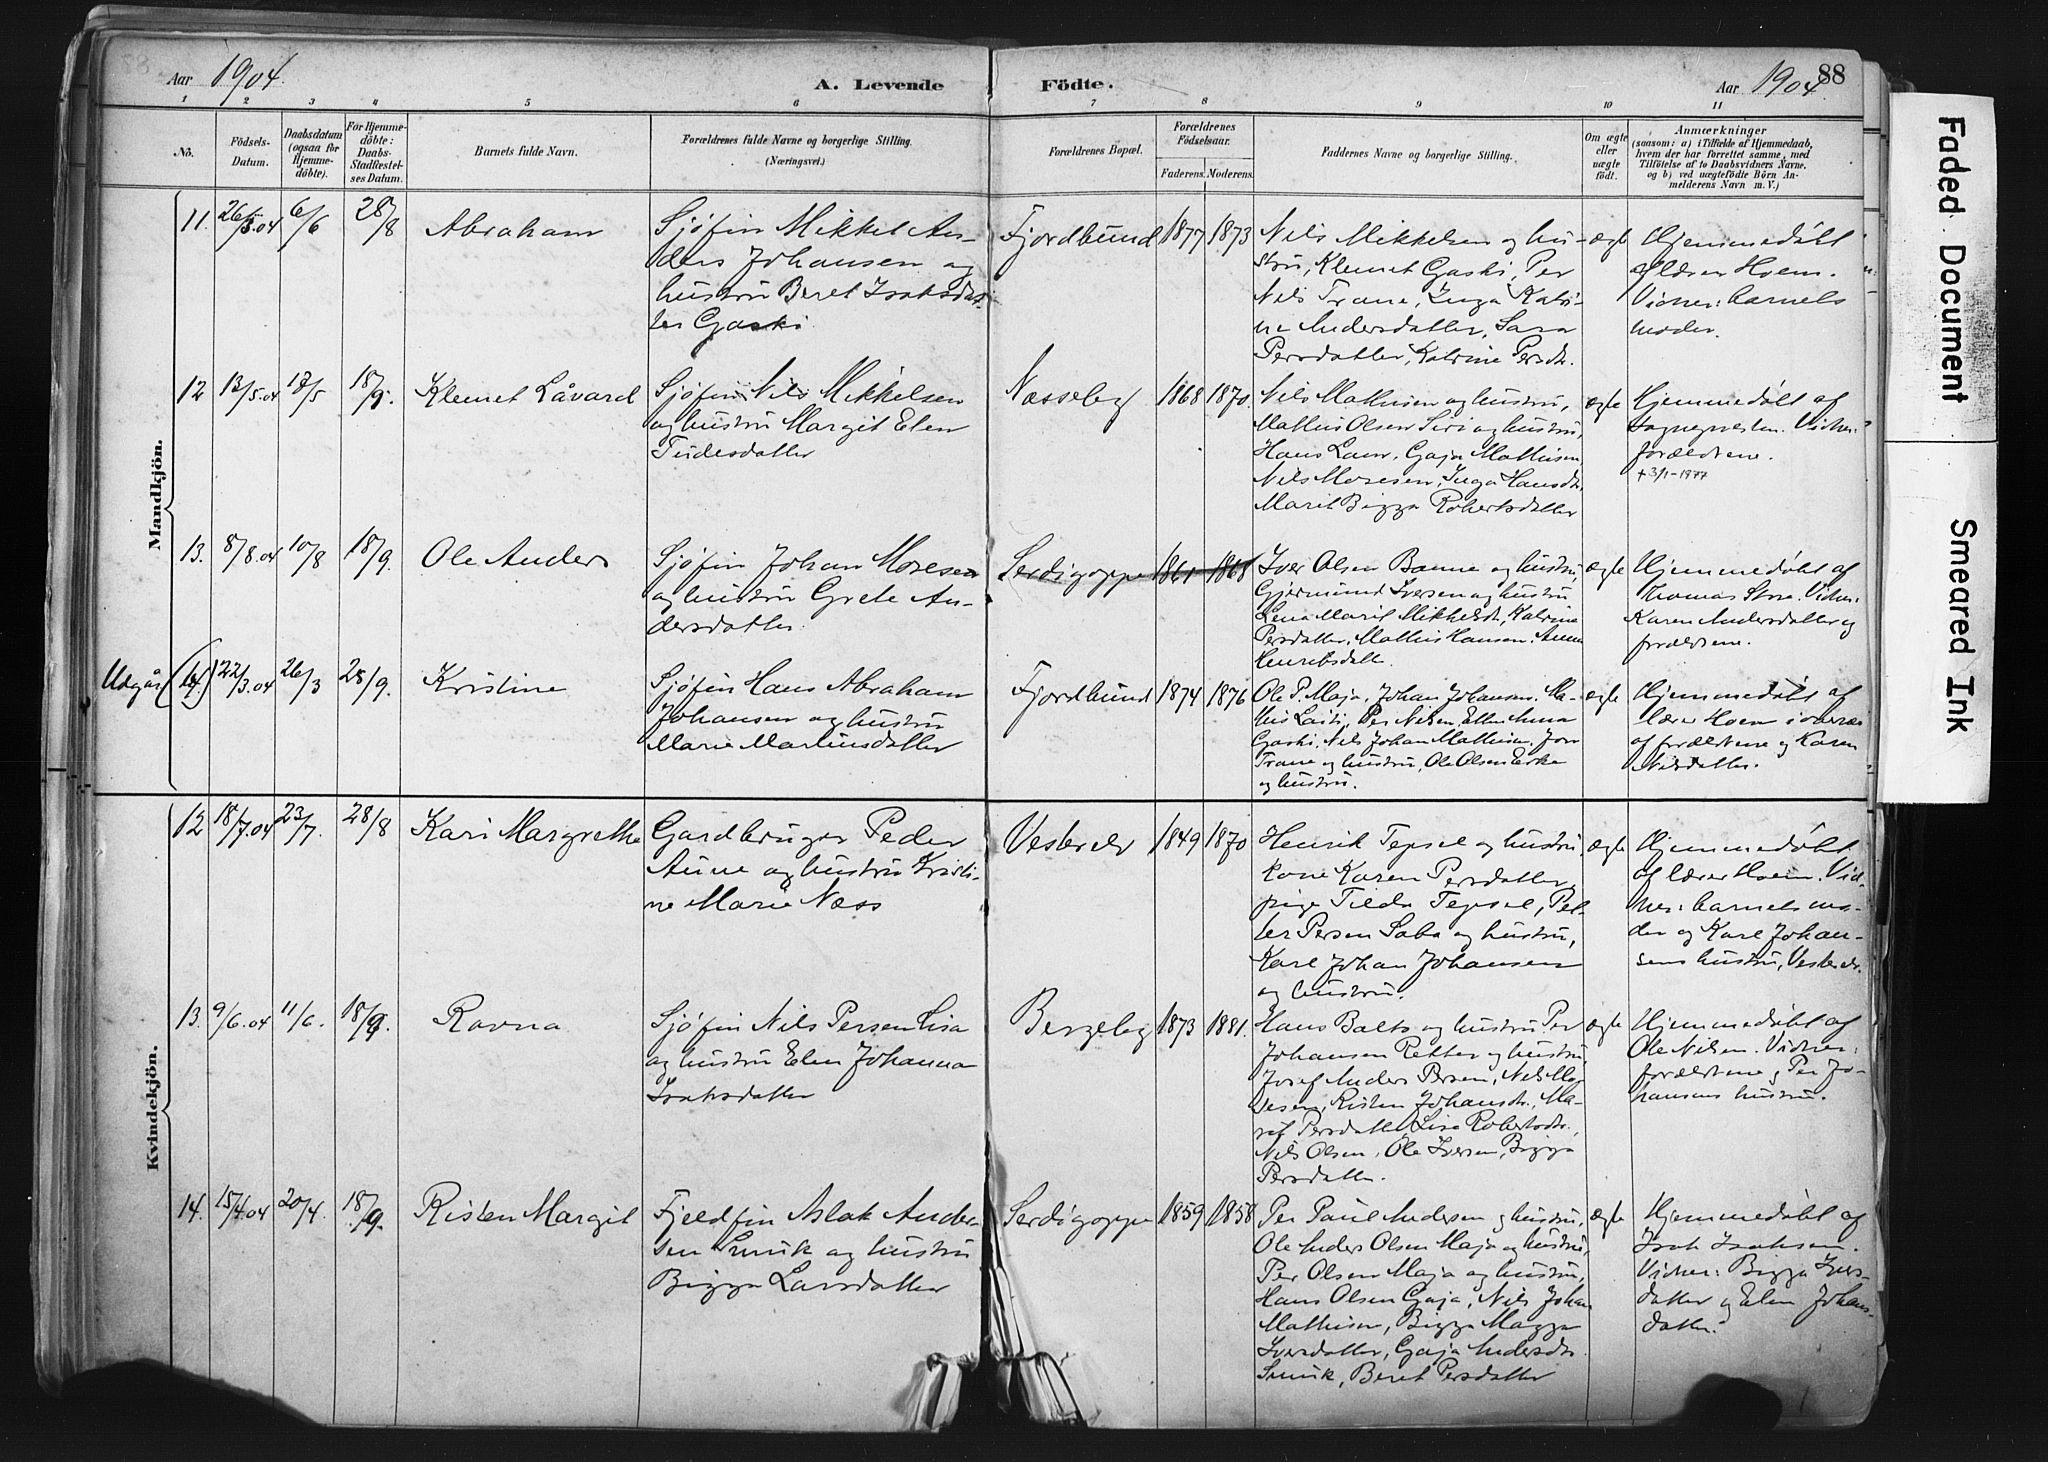 Aar 1904.
A. Levende
Födte.
Aar 1904.
88
1 2 3 4 5 6 7 8 9 10 11
No.
Födsels-
Datum.
Daabsdatum
(ogsaa for
Hjemme-
döbte).
For Hjemme-
döbte:
Daabs-
Stadfæstel-
ses Datum.
Barnets fulde Navn.
Forældrenes fulde Navne og borgerlige Stilling.
(Næringsvei.)
Forældrenes Bopæl.
Forældrenes
Födselsaar.
Faderens. Moderens.
Faddernes Navne og borgerlige Stilling.
Om ægte
eller
uægte
födt.
Anmærkninger
(saasom: a) i Tilfælde af Hjemmedaab,
hvem der har forrettet samme, med
Tilföielse af to Daabsvidners Navne,
og b) ved uægtefödte Börn An-
melderens Navn m. V.)
Mandkjön.
11. 26/3.04 6/6 28/8
Abraham
Sjöfin Mikkel An-
ders Johansen og
hustru Beret Isaksdat-
ter Gaski
Fjordbund
1877 1873
Nils Mikkelsen og hu-
stru, Klemet Gaski, Per
Nils Trane, Inga Katri-
ne Andersdatter, Sara
Persdatter, Katrine Persdtr.
ægte
Hjemmedöbt
af lærer Hoem.
Vidner: barnets
moder.
12 13/5.04 17/5 18/9.
Klemet Låvard
Sjöfin Nils Mikkelsen
og hustru Margit Elen
Tudesdatter
Nesseby
1868 1870.
Nils Mathisen og hustru,
Mathis Olsen Siri og hustru,
Hans Laur, Gaja Mathisen
Nils Mosesen, Inga Hansdtr,
Marit Bigga Robertsdatter
ægte
Hjemmedöbt af
sognepresten. Vidner:
forældrene.
+3/1-1977
13. 8/8.04 10/8 18/9.
Ole Anders
Sjöfin Johan Mosesen
og hustru Grete An-
dersdatter.
Serdigoppe
1861 1868
Iver Olsen Banne og hustru,
Gjermund Iversen og hustru
Lena Marit Mikkelsdt., Katrine
Persdatter, Mathis Hansen, Anna
Henriksdatter.
ægte
Hjemmedöbt af
Thomas Store. Vidner:
Karen Andersdatter og
forældrene.
Udgår (14) 22/3.04 26/3 28/9.
Kristine
Sjöfin Hans Abraham
Johansen og hustru
Marie Martinsdatter
Fjordbund
1874 1876
Ole P. Maja, Johan Johansen, Ma-
this Lasti, Per Nilsen, Ellen Anna
Gaski, Nils Johan Mathisen, Jon
Trane og hustru, Ole Olsen Erke
og hustru.
ægte
Hjemmedöbt af
lærer Hoem i overvær
af forældrene og Karen
Nilsdatter.
Kvindekjön.
12 18/7.04 23/7. 28/8
Kari Margrethe
Gardbruger Peder
Aune og hustru Kristi-
ne Marie Næss
Vesterelv
1849 1870
Henrik Tepsel og hustru,
kone Karen Persdatter,
pige Tilda Tepsel, Pet-
ter Persen Saba og hustru,
Karl Johan Johansen
og hustru.
ægte
Hjemmedöbt
af lærer Hoem. Vid-
ner: barnets mo-
der og Karl Johan-
sens hustru, Vesterelv.
13. 9/6.04 11/6. 18/9.
Ravna
Sjöfin Nils Persen Lisa
og hustru Elen Johanna
Isaksdatter
Bergeby
1873 1881.
Hans Balto og hustru, Per
Johansen Retter og hustru,
Josef Anders Persen, Nils Mo-
sesen, Risten Johansdtr., Ma-
rit Persdatter, Lisa Robertsdtr.,
Nils Olsen, Ole Iversen, Bigga
Persdatter.
ægte
Hjemmedöbt af
Ole Nilsen. Vidner:
forældrene og Per Jo-
hansens hustru.
14. 15/4.04 20/4. 18/9.
Risten Margit
Fjeldfin Aslak Ander-
sen Smuk og hustru
Bigga Larsdatter
Serdigoppe
1859 1858
Per Paul Andersen og hustru,
Ole Anders Olsen Maja og hustru,
Per Olsen Maja og hustru,
Hans Olsen Gaja, Nils Johan
Mathisen, Bigga Magga
Iversdatter, Gaja Andersdtr.
Smuk, Beret Persdatter
ægte
Hjemmedöbt af
Isak Isaksen.
Vidner: Bigga Ivers-
datter og Elen Johans-
datter.
Faded Document
Smeared Ink